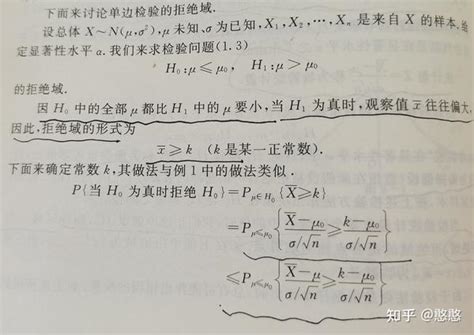 下面来讨论单边检验的拒绝域.
设总体 X～N(μ,σ²),μ 未知、σ 为已知,X₁,X₂,⋯,Xₙ 是来自 X 的样本.给
定显著性水平 α.我们来求检验问题(1.3)
H₀:μ≤μ₀, H₁:μ>μ₀
的拒绝域.
因 H₀ 中的全部 μ 都比 H₁ 中的 μ 要小,当 H₁ 为真时,观察值 x̄ 往往偏大,
因此,拒绝域的形式为
x̄≥k (k 是某一正常数).
下面来确定常数 k,其做法与例 1 中的做法类似.
P{当 H₀ 为真时拒绝 H₀}=P_{μ∈H₀}{X̄≥k}
=P_{μ≤μ₀}{(X̄−μ₀)/(σ/√n)≥(k−μ₀)/(σ/√n)}
≤P_{μ≤μ₀}{(X̄−μ)/(σ/√n)≥(k−μ₀)/(σ/√n)}
知乎 @憨憨